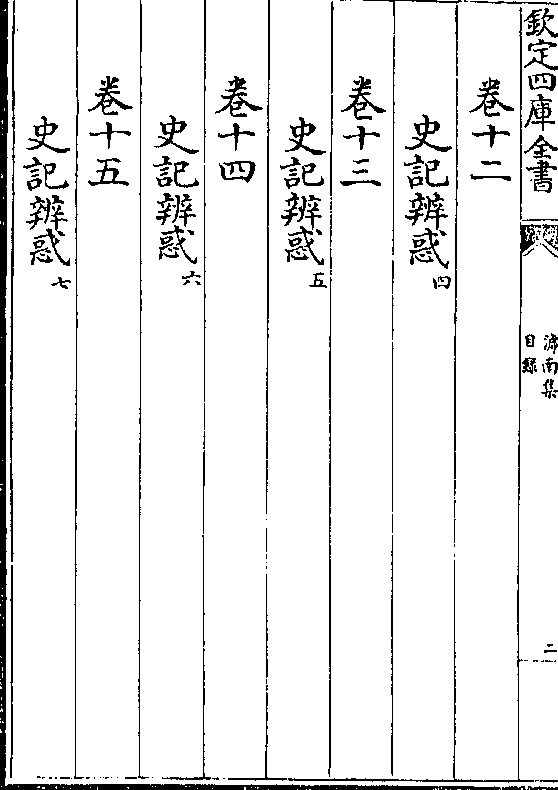 欽定四庫全書
滹南集
目錄
二
卷十二
史記辨惑四
卷十三
史記辨惑五
卷十四
史記辨惑六
卷十五
史記辨惑七